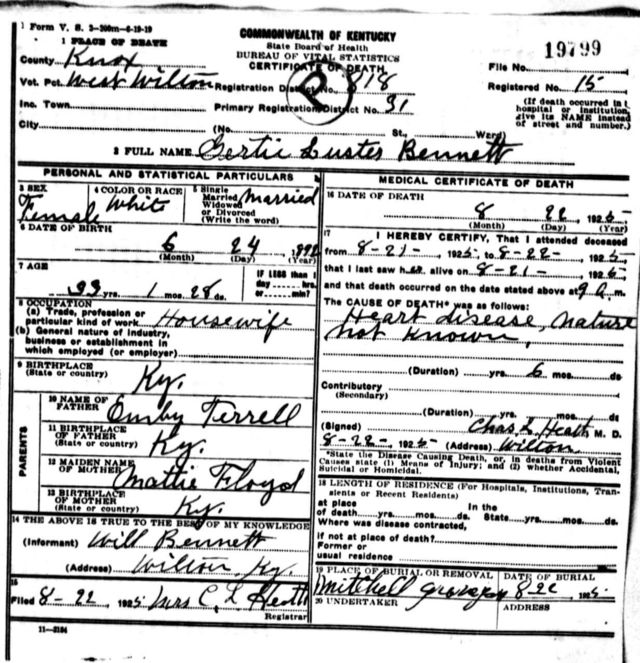 1 Form V. S. 3-300m-6-19-19
1 PLACE OF DEATH
County Knox
Vot. Pct. West Wilton
Inc. Town
City
COMMONWEALTH OF KENTUCKY
State Board of Health
BUREAU OF VITAL STATISTICS
CERTIFICATE OF DEATH
Registration District No. 818
Primary Registration District No. 31
P
(No. St., Ward)
File No. 19799
Registered No. 15
(If death occurred in a
hospital or institution,
give its NAME instead
of street and number.)
2 FULL NAME Gertie Luster Bennett
PERSONAL AND STATISTICAL PARTICULARS
3 SEX Female
4 COLOR OR RACE White
5 Single
Married
Widowed
or Divorced
(Write the word) Married
6 DATE OF BIRTH
6 24 1892
(Month) (Day) (Year)
7 AGE
33 yrs. 1 mos. 28 ds.
IF LESS than 1
day hrs.
or min?
8 OCCUPATION
(a) Trade, profession or
particular kind of work Housewife
(b) General nature of industry,
business or establishment in
which employed (or employer)
9 BIRTHPLACE
(State or country) Ky.
PARENTS
10 NAME OF
FATHER Emby Terrell
11 BIRTHPLACE
OF FATHER
(State or country) Ky.
12 MAIDEN NAME
OF MOTHER Mattie Floyd
13 BIRTHPLACE
OF MOTHER
(State or country) Ky.
14 THE ABOVE IS TRUE TO THE BEST OF MY KNOWLEDGE
(Informant) Will Bennett
(Address) Wilton, Ky.
15
Filed 8-22, 1925 Mrs C. L. Heath
Registrar
11-3184
MEDICAL CERTIFICATE OF DEATH
16 DATE OF DEATH
8 22, 1925
(Month) (Day) (Year)
17 I HEREBY CERTIFY, That I attended deceased
from 8-21-, 1925, to 8-22-, 1925,
that I last saw her alive on 8-21-, 1925
and that death occurred on the date stated above at 9 a. m.
The CAUSE OF DEATH* was as follows:
Heart disease, nature
not known,
(Duration) yrs. 6 mos. ds
Contributory
(Secondary)
(Duration) yrs. mos. ds
(Signed) Chas L. Heath M. D.
8-22-, 1925 (Address) Wilton
*State the Disease Causing Death, or, in deaths from Violent
Causes state (1) Means of Injury; and (2) whether Accidental,
Suicidal or Homicidal.
18 LENGTH OF RESIDENCE (For Hospitals, Institutions, Tran-
sients or Recent Residents)
at place In the
of death yrs. mos. ds. State yrs. mos. ds.
Where was disease contracted,
if not at place of death?
Former or
usual residence
19 PLACE OF BURIAL OR REMOVAL
Mitchell
DATE OF BURIAL
8-22, 1925
20 UNDERTAKER
ADDRESS